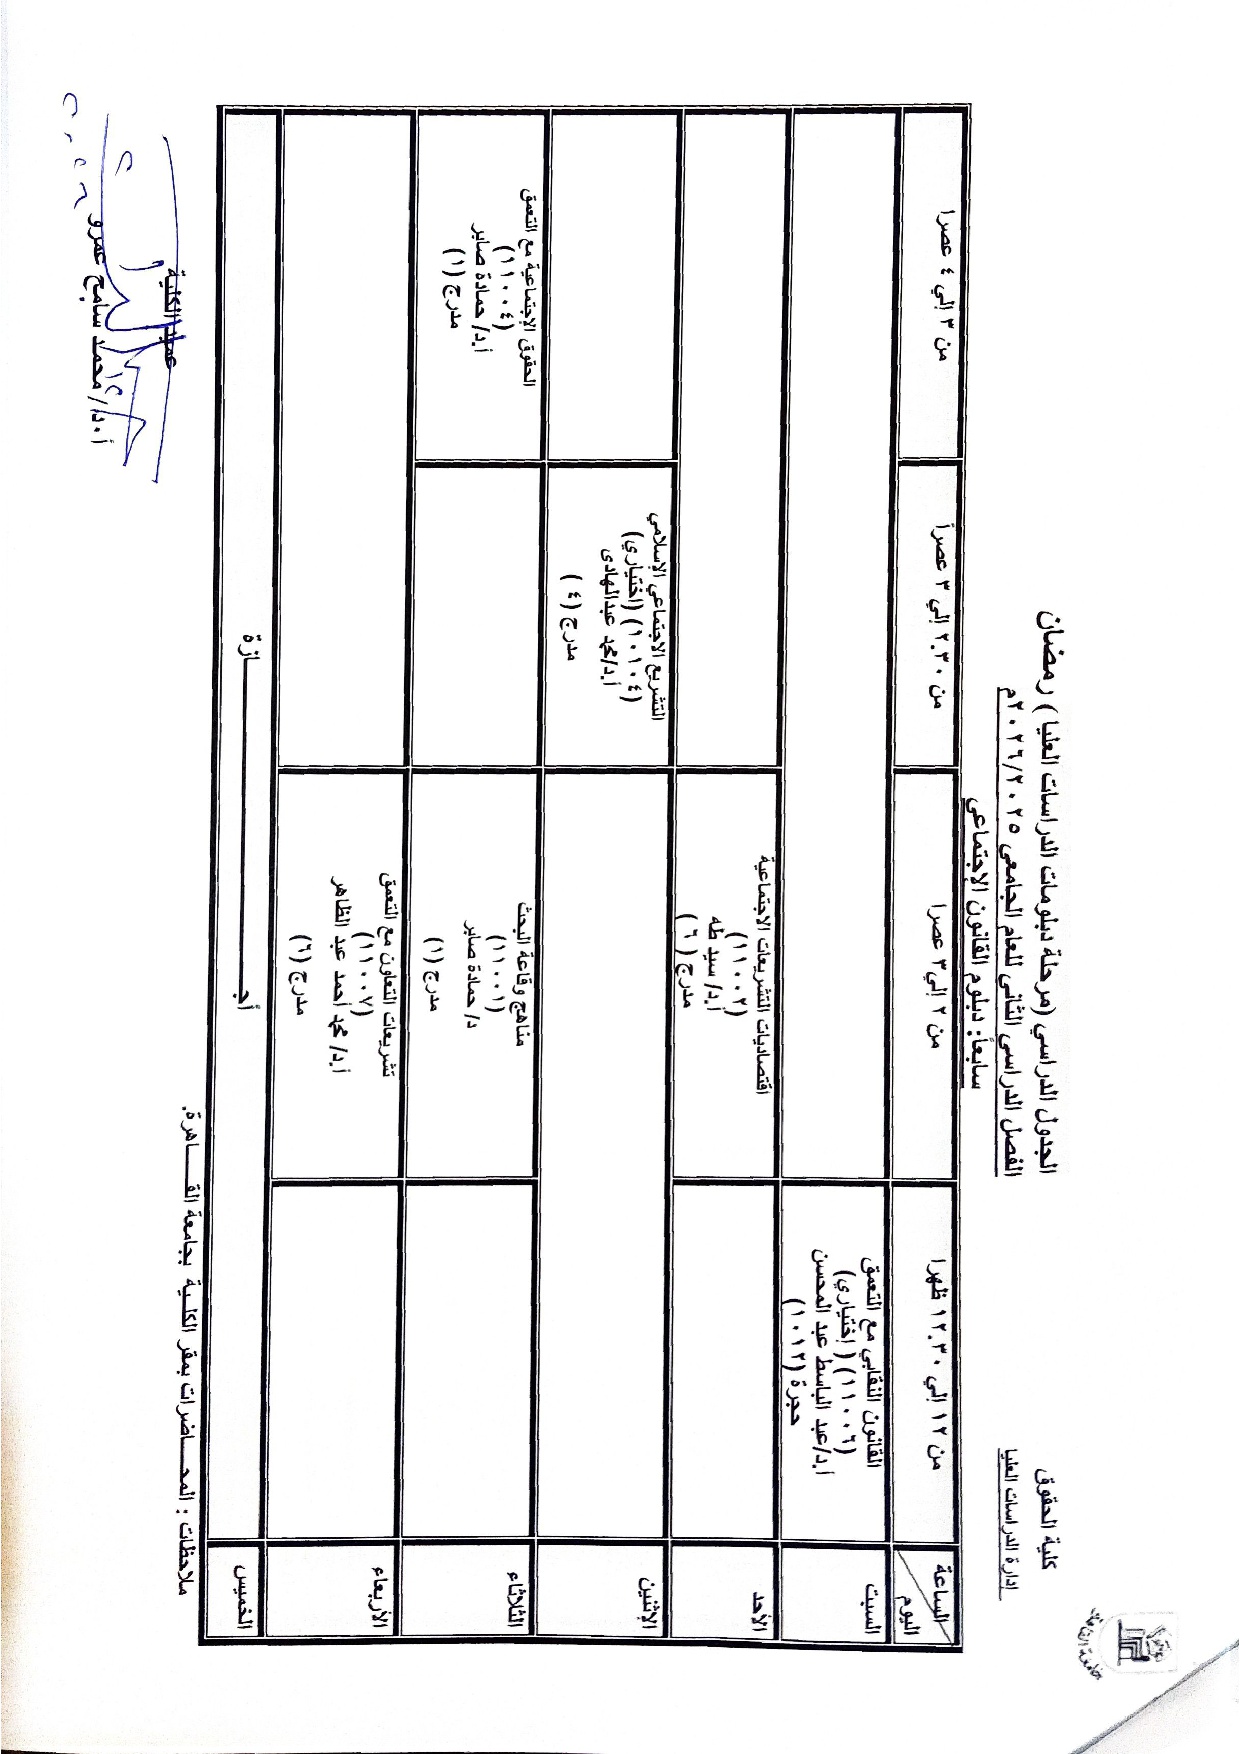 جامعة القاهرة
كلية الحقوق
إدارة الدراسات العليا
الجدول الدراسي (مرحلة دبلومات الدراسات العليا ) رمضان
الفصل الدراسي الثاني للعام الجامعي ٢٠٢٦/٢٠٢٥م
سابعاً: دبلوم القانون الإجتماعي
الساعة
اليوم
من ١٢ إلي ١٢.٣٠ ظهرا
من ٢ إلي ٣ عصرا
من ٢.٣٠ إلي ٣ عصراً
من ٣ إلي ٤ عصرا
السبت
القانون النقابي مع التعمق
(١١٠٠٦) ( إختياري)
أ.د/عبد الباسط عبد المحسن
حجرة (١٠١٢)
الأحد
اقتصاديات التشريعات الاجتماعية
(١١٠٠٢)
أ.د/ سيد طه
مدرج ( ٦)
الإثنين
التشريع الاجتماعي الإسلامي
(١٠١٠٤) (اختياري)
أ.د/محمد عبدالهادى
مدرج ( ٤ )
الثلاثاء
مناهج وقاعة البحث
(١١٠٠١)
د/ حمادة صابر
مدرج (١)
الحقوق الإجتماعية مع التعمق
(١١٠٠٤)
أ.د/ حمادة صابر
مدرج (١)
الأربعاء
تشريعات التعاون مع التعمق
(١١٠٠٧)
أ.د/ محمد أحمد عبد الظاهر
مدرج (٦)
الخميس
أجـــــــــازة
ملاحظات : المحـــاضرات بمقر الكلـية بجامعة القـــاهرة.
عميد الكلية
أ.د/ محمد سامح عمرو